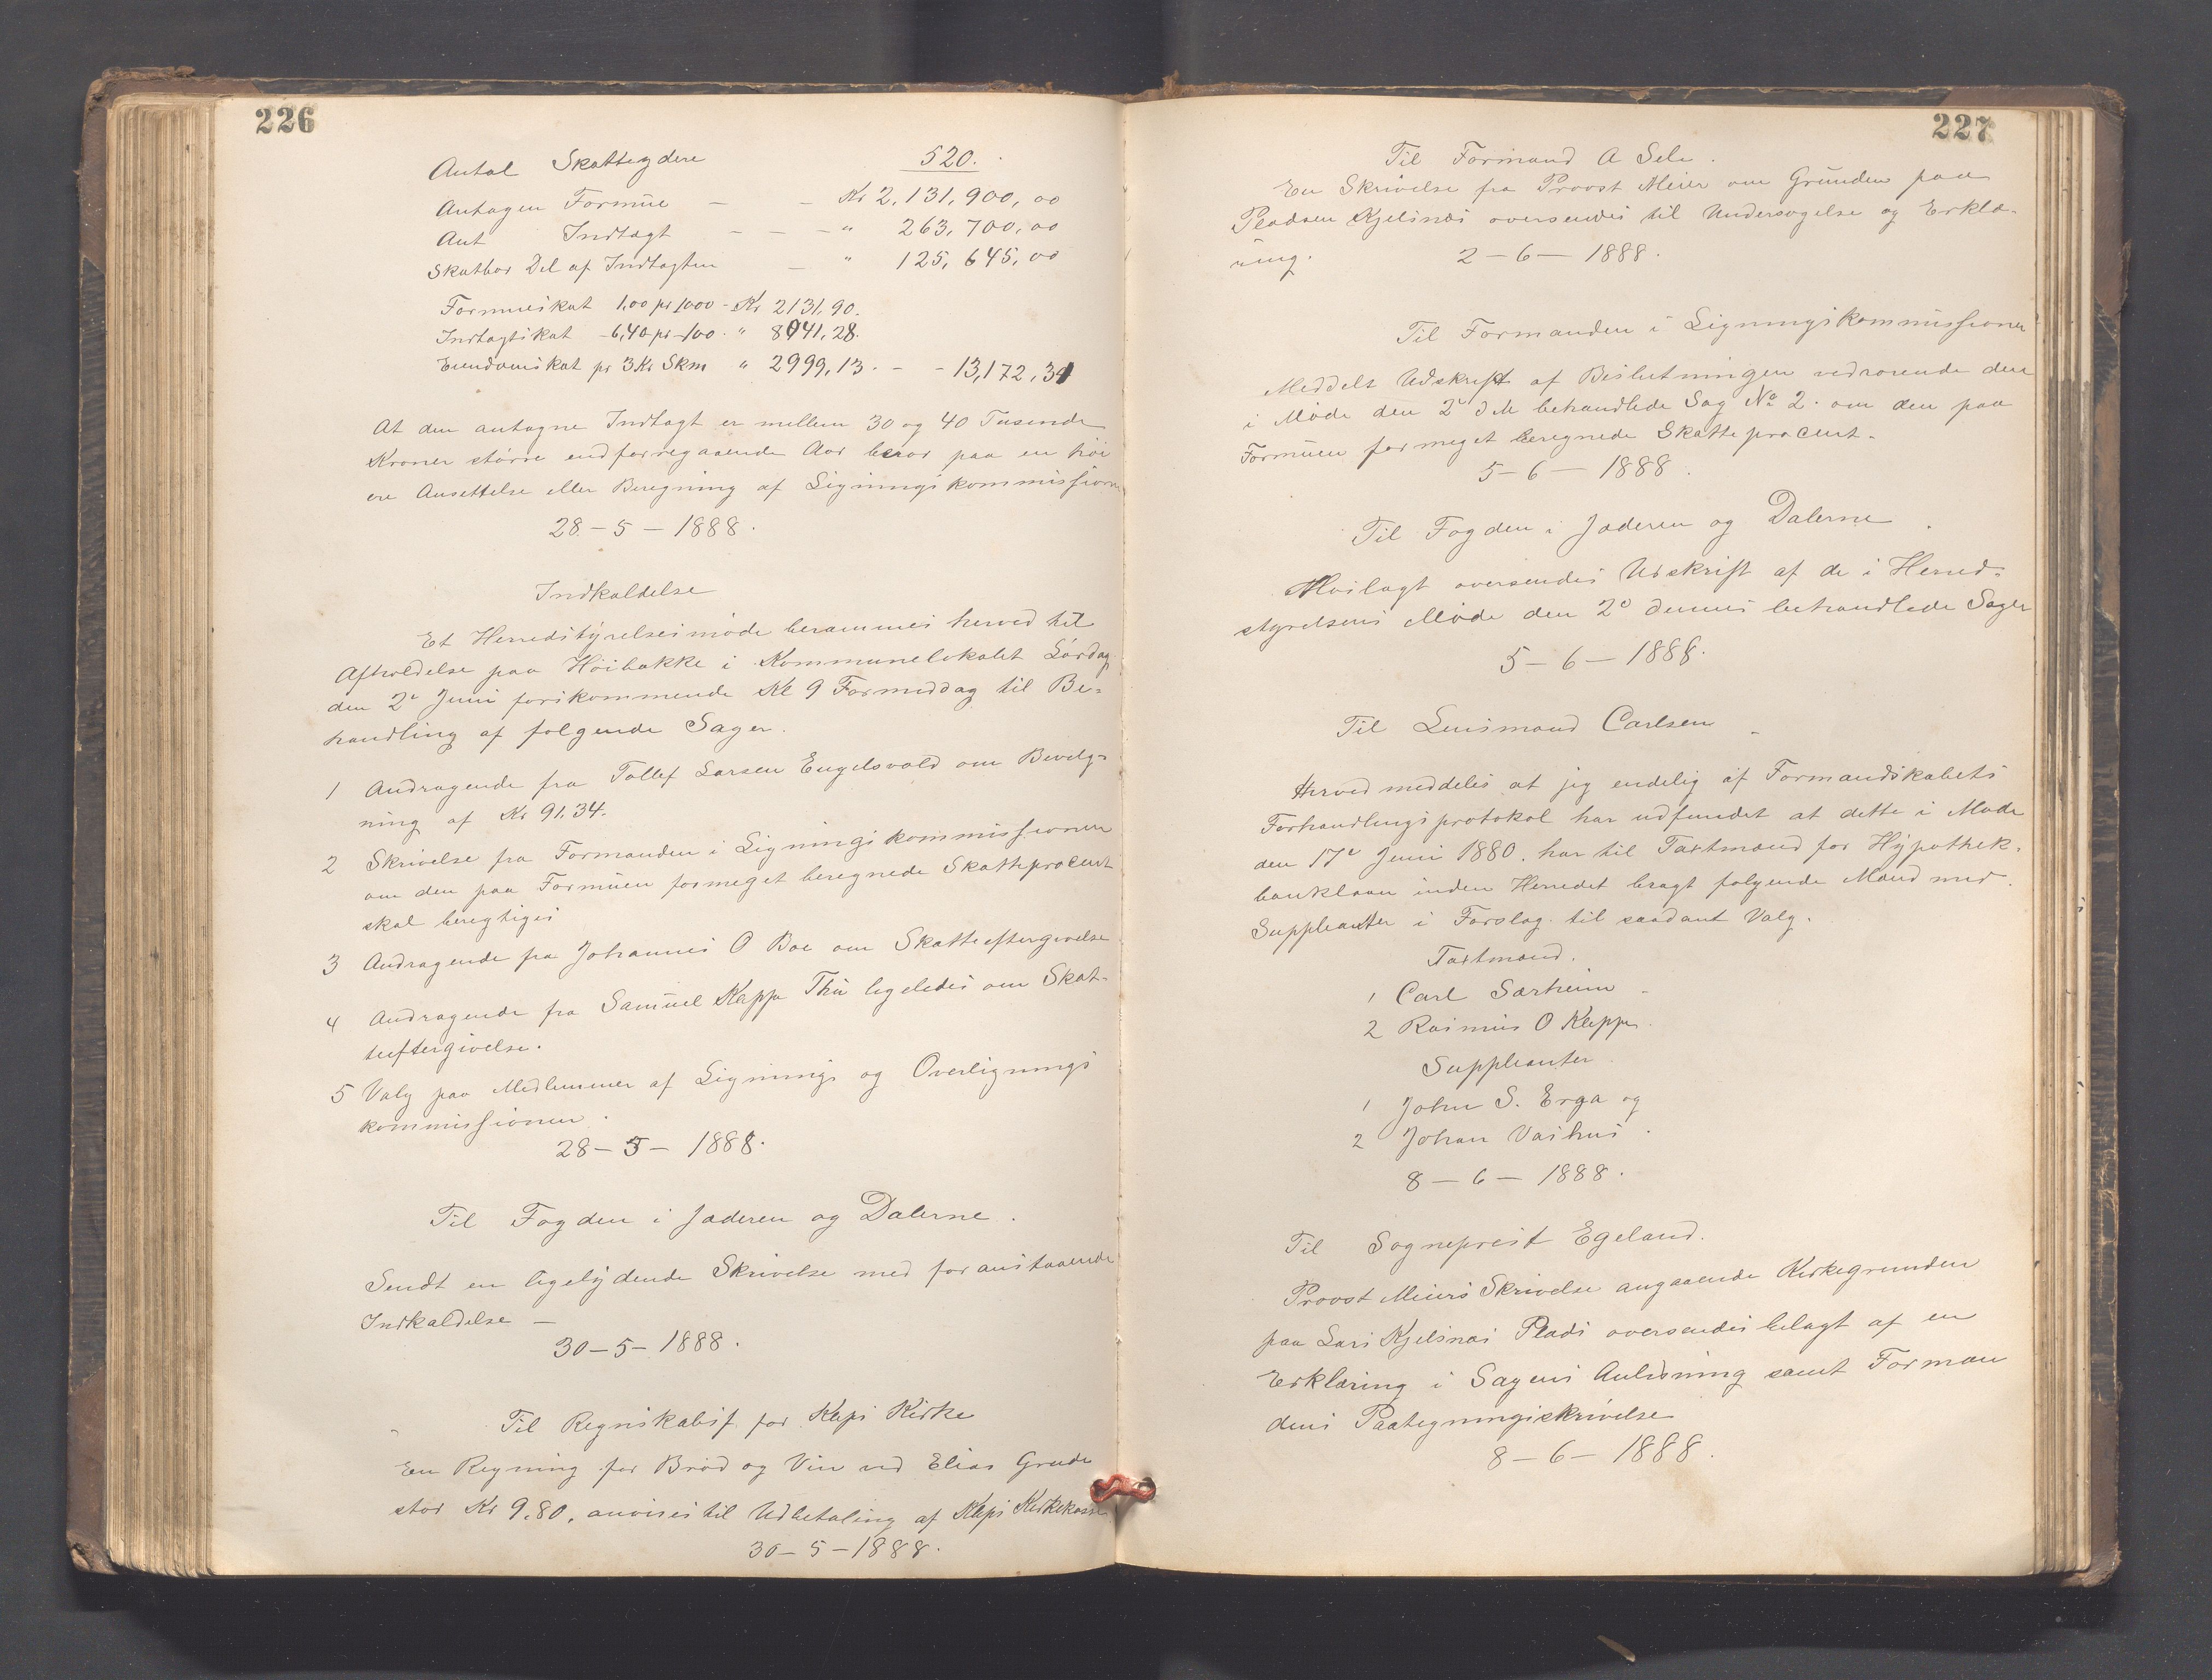 226
Antal Skatteydere 520.
Antagen Formue — — Kr 2,131,900,00
Ant Indtægt — — — " 263,700,00
Skatbar Del af Indtægten — " 125,645,00
Formueskat 1,00 pr 1000 - Kr 2131,90.
Indtægtskat - 6,40 pr 100 " 8041,28.
Eiendomskat pr 3 Kr Skm " 2999,13. - - 13,172,31
At den antagne Indtægt er mellem 30 og 40 Tusende
Kroner større end forregaaende Aar beror paa en høi
ere Ansettelse eller Beregning af Ligningskommissionen
28 - 5 - 1888.
Indkaldelse
Et Herredstyrelsesmøde berammes herved til
Afholdelse paa Høibakke i Kommunelokalet Lørdag
den 2e Juni førskommende Kl 9 Formiddag til Be-
handling af følgende Sager.
1 Andragende fra Tollef Larsen Engelsvold om Bevilg-
ning af Kr 91.34.
2 Skrivelse fra Formanden i Ligningskommissionen
om den paa Formuen formeget beregnede Skatteprocent
skal beregtiges
3 Andragende fra Johannes O Boe om Skatteeftergivelse
4 Andragende fra Samuel Kleppe Thu ligeledes om Skat-
teeftergivelse.
5 Valg paa Medlemmer af Lignings og Overlignings
kommissionen.
28 - 5 - 1888.
Til Fogden i Jæderen og Dalerne.
Sendt en ligelydende Skrivelse med foranstaaende
Indkaldelse —
30 - 5 - 1888.
Til Regnskabsf. for Kleps Kirke
En Regning for Brød og Vin ved Elias Grude
stor Kr 9.80, anvises til Udbetaling af Kleps Kirkekasse
30 - 5 - 1888.
227
Til Formand A Sele.
En Skrivelse fra Provst Meier om Grunden paa
Pladsen Kjelsnæs oversendes til Undersøgelse og Erklæ-
ring. 2 - 6 - 1888.
Til Formanden i Ligningskommissionen
Meddelt Udskrift af Beslutningen vedrørende den
i Møde den 2e d M behandlede Sag No 2. om den paa
Formuen formeget beregnede Skatteprocent.
5 - 6 - 1888.
Til Fogden i Jæderen og Dalerne.
Hoslagt oversendes Udskrift af de i Herred-
styrelsens Møde den 2e dennes behandlede Sager
5 - 6 - 1888.
Til Lensmand Carlsen
Herved meddeles at jeg endelig af Formandskabets
Forhandlingsprotokol har udfundet at dette i Møde
den 17e Juni 1880. har til Taxtmænd for Hypothek-
banklaan inden Herredet bragt følgende Mænd med
Suppleanter i Forslag til saadant Valg.
Taxtmænd.
1 Carl Særheim
2 Rasmus O Kleppe.
Suppleanter.
1 John S. Erga og
2 Johan Vashus.
8 - 6 - 1888.
Til Sogneprest Egeland.
Provst Meiers Skrivelse angaaende Kirkegrunden
paa Lars Kjelsnæs Plads oversendes belagt af en
Erklæring i Sagens Anledning samt Forman
dens Paategningsskrivelse
8 - 6 - 1888.